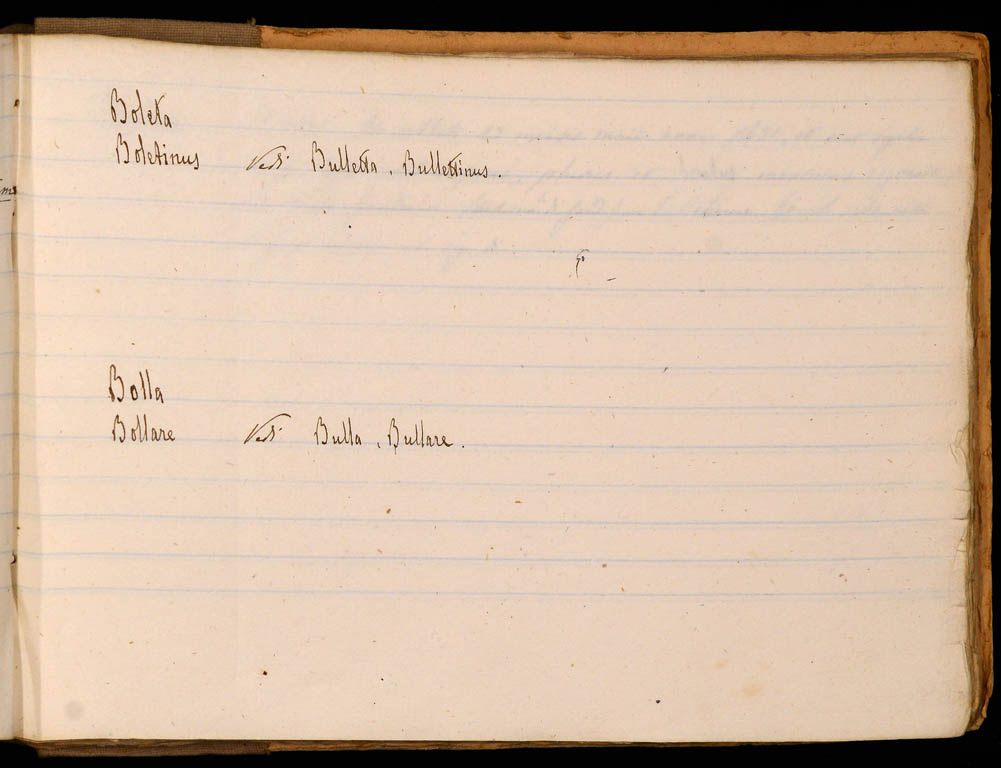 Boleta
Boletinus Vedi Bulletta, Bullettinus.
Bolla
Bollare Vedi Bulla, Bullare.